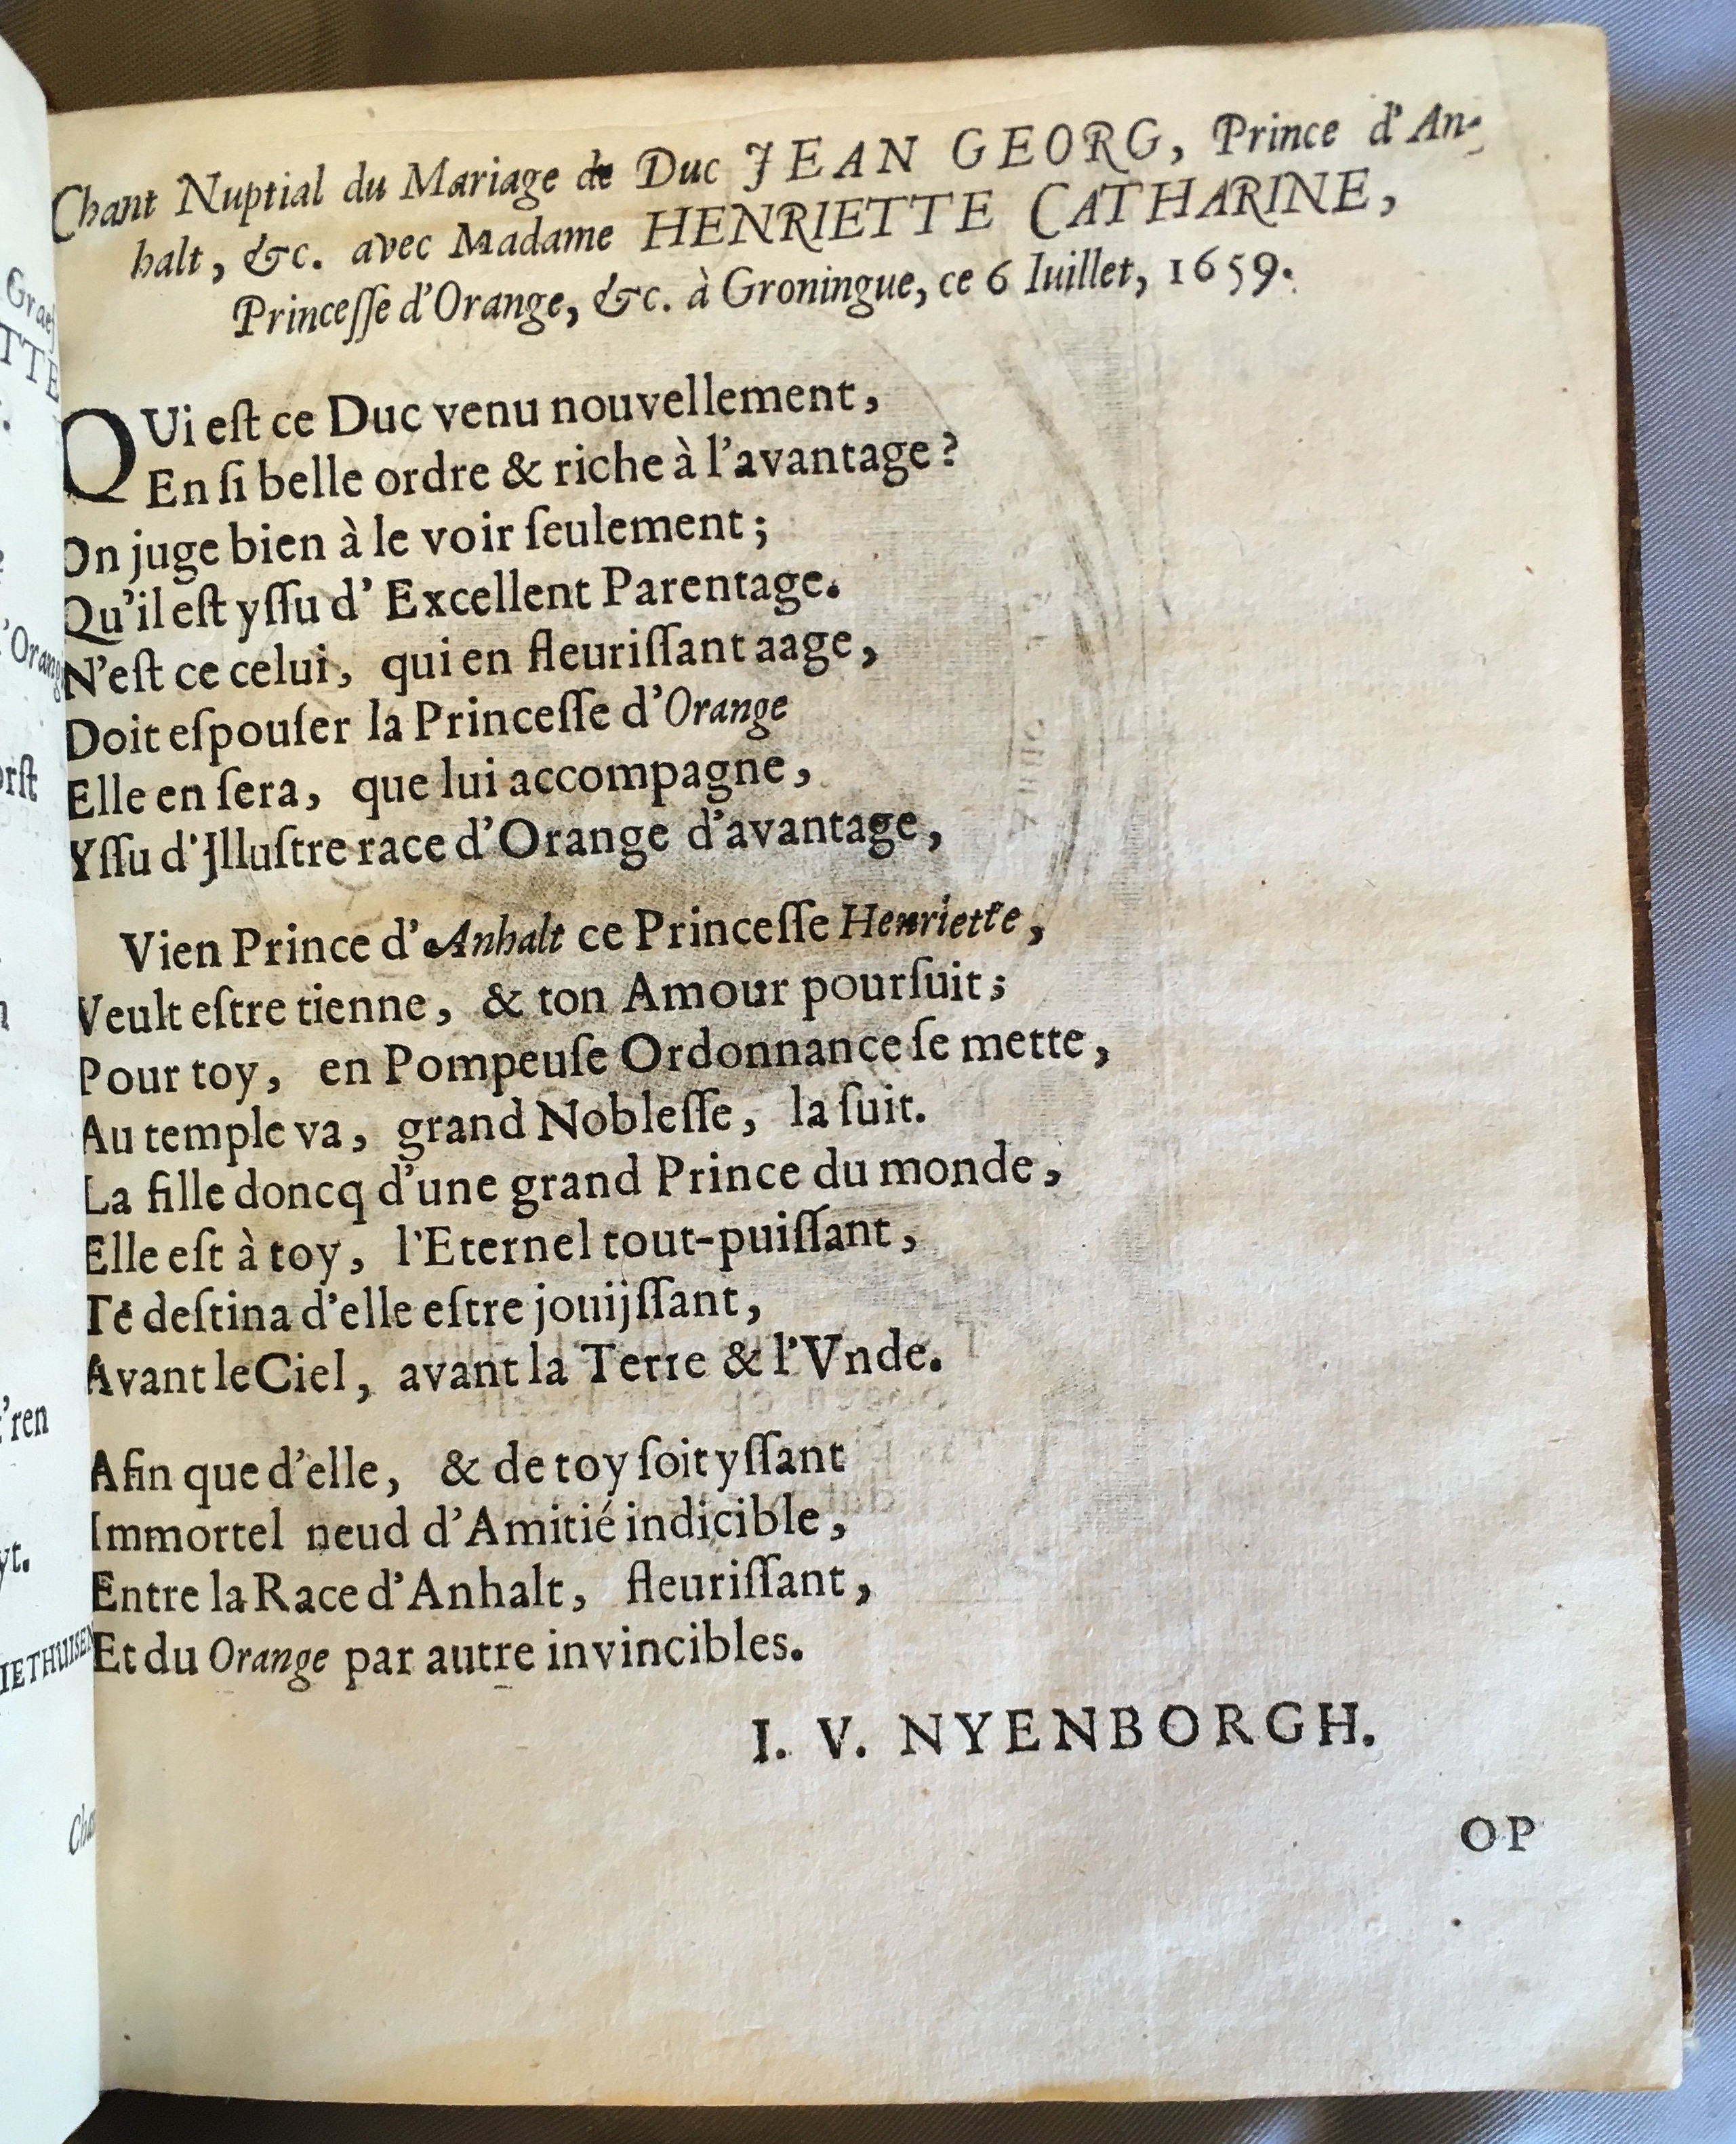 Chant Nuptial du Mariage de Duc JEAN GEORG, Prince d'An-
halt, &c. avec Madame HENRIETTE CATHARINE,
Princeſſe d'Orange, &c. à Groningue, ce 6 Iuillet, 1659.
QUi eſt ce Duc venu nouvellement,
En ſi belle ordre & riche à l'avantage?
On juge bien à le voir ſeulement;
Qu'il eſt yſſu d' Excellent Parentage.
N'eſt ce celui, qui en fleuriſſant aage,
Doit eſpouſer la Princeſſe d'Orange
Elle en ſera, que lui accompagne,
Yſſu d'Jlluſtre race d'Orange d'avantage,
Vien Prince d'Anhalt ce Princeſſe Henriette,
Veult eſtre tienne, & ton Amour pourſuit;
Pour toy, en Pompeuſe Ordonnance ſe mette,
Au temple va, grand Nobleſſe, la ſuit.
La fille doncq d'une grand Prince du monde,
Elle eſt à toy, l'Eternel tout-puiſſant,
Té deſtina d'elle eſtre jouijſſant,
Avant le Ciel, avant la Terre & l'Vnde.
Afin que d'elle, & de toy ſoit yſſant
Immortel neud d'Amitié indicible,
Entre la Race d'Anhalt, fleuriſſant,
Et du Orange par autre invincibles.
I. V. NYENBORGH.
OP